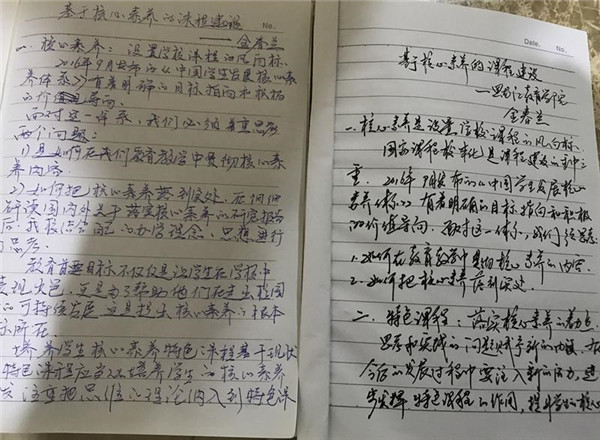 基于核心素养的课程建设
No.
——金春兰
一、核心素养：设置学校课程的风向标
2016年9月发布的《中国学生发展核心素
养体系》有着明确的目标指向和积极
的价值导向。
面对这一体系，我们必须着重思考
两个问题：
1）是如何在我们教育教学中贯彻核心素
养内容
2）如何把核心素养落到实处。
研读国内外关于落实核心素养的研究报告
后，我校结合的办学理念、思想进行
了思考
教育首要目标不仅仅是让学生在学校中
表现出色，更是为了帮助他们在走出校园
的可持续发展，这是提出核心素养的根本
所在。
培养学生核心素养特色课程基于现状
特色课程应当以培养学生的核心素养
注重把思维的理论纳入到特色课
Date. No.
基于核心素养的课程建设
——黑龙江教育学院
金春兰
一、核心素养是设置学校课程的风向标
国家课程校本化是课程建设的重中之
重。2016年9月发布的《中国学生发展核心
素养体系》有着明确的目标指向和积极
的价值导向。面对这一体系，我们须思考
1.如何在教育教学中贯彻核心素养的内容。
2.如何把核心素养落到实处
二、特色课程：落实核心素养的着力点
思考和实践的问题赋予新的内涵，在
今后的发展过程中要注入新的活力，进
步发挥特色课程的作用，提升学生的核心